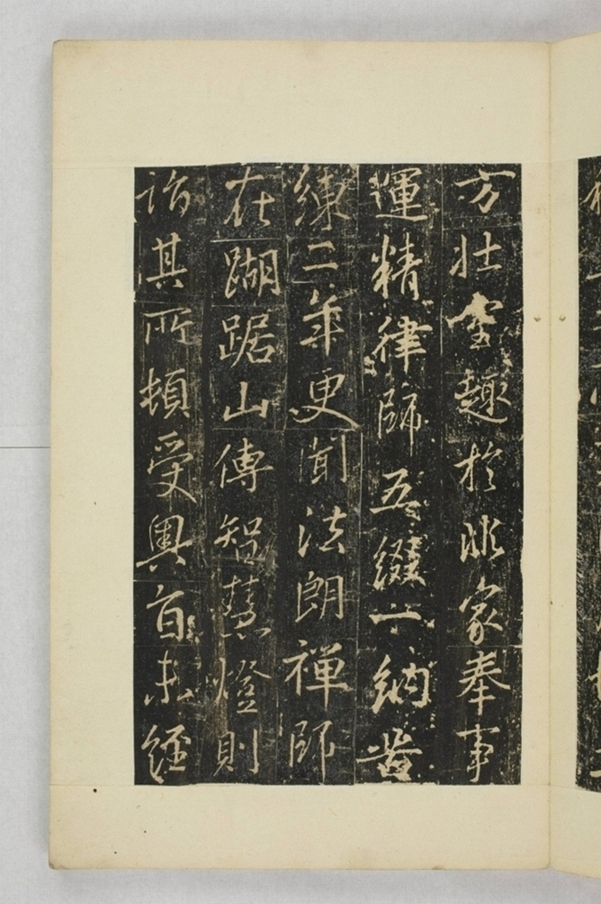 方壯室趣於非家奉事
運精律師五綴一納苦
練二年更聞法朗禪師
在踞山傳智慧燈則
詣其所頓受奧旨未經